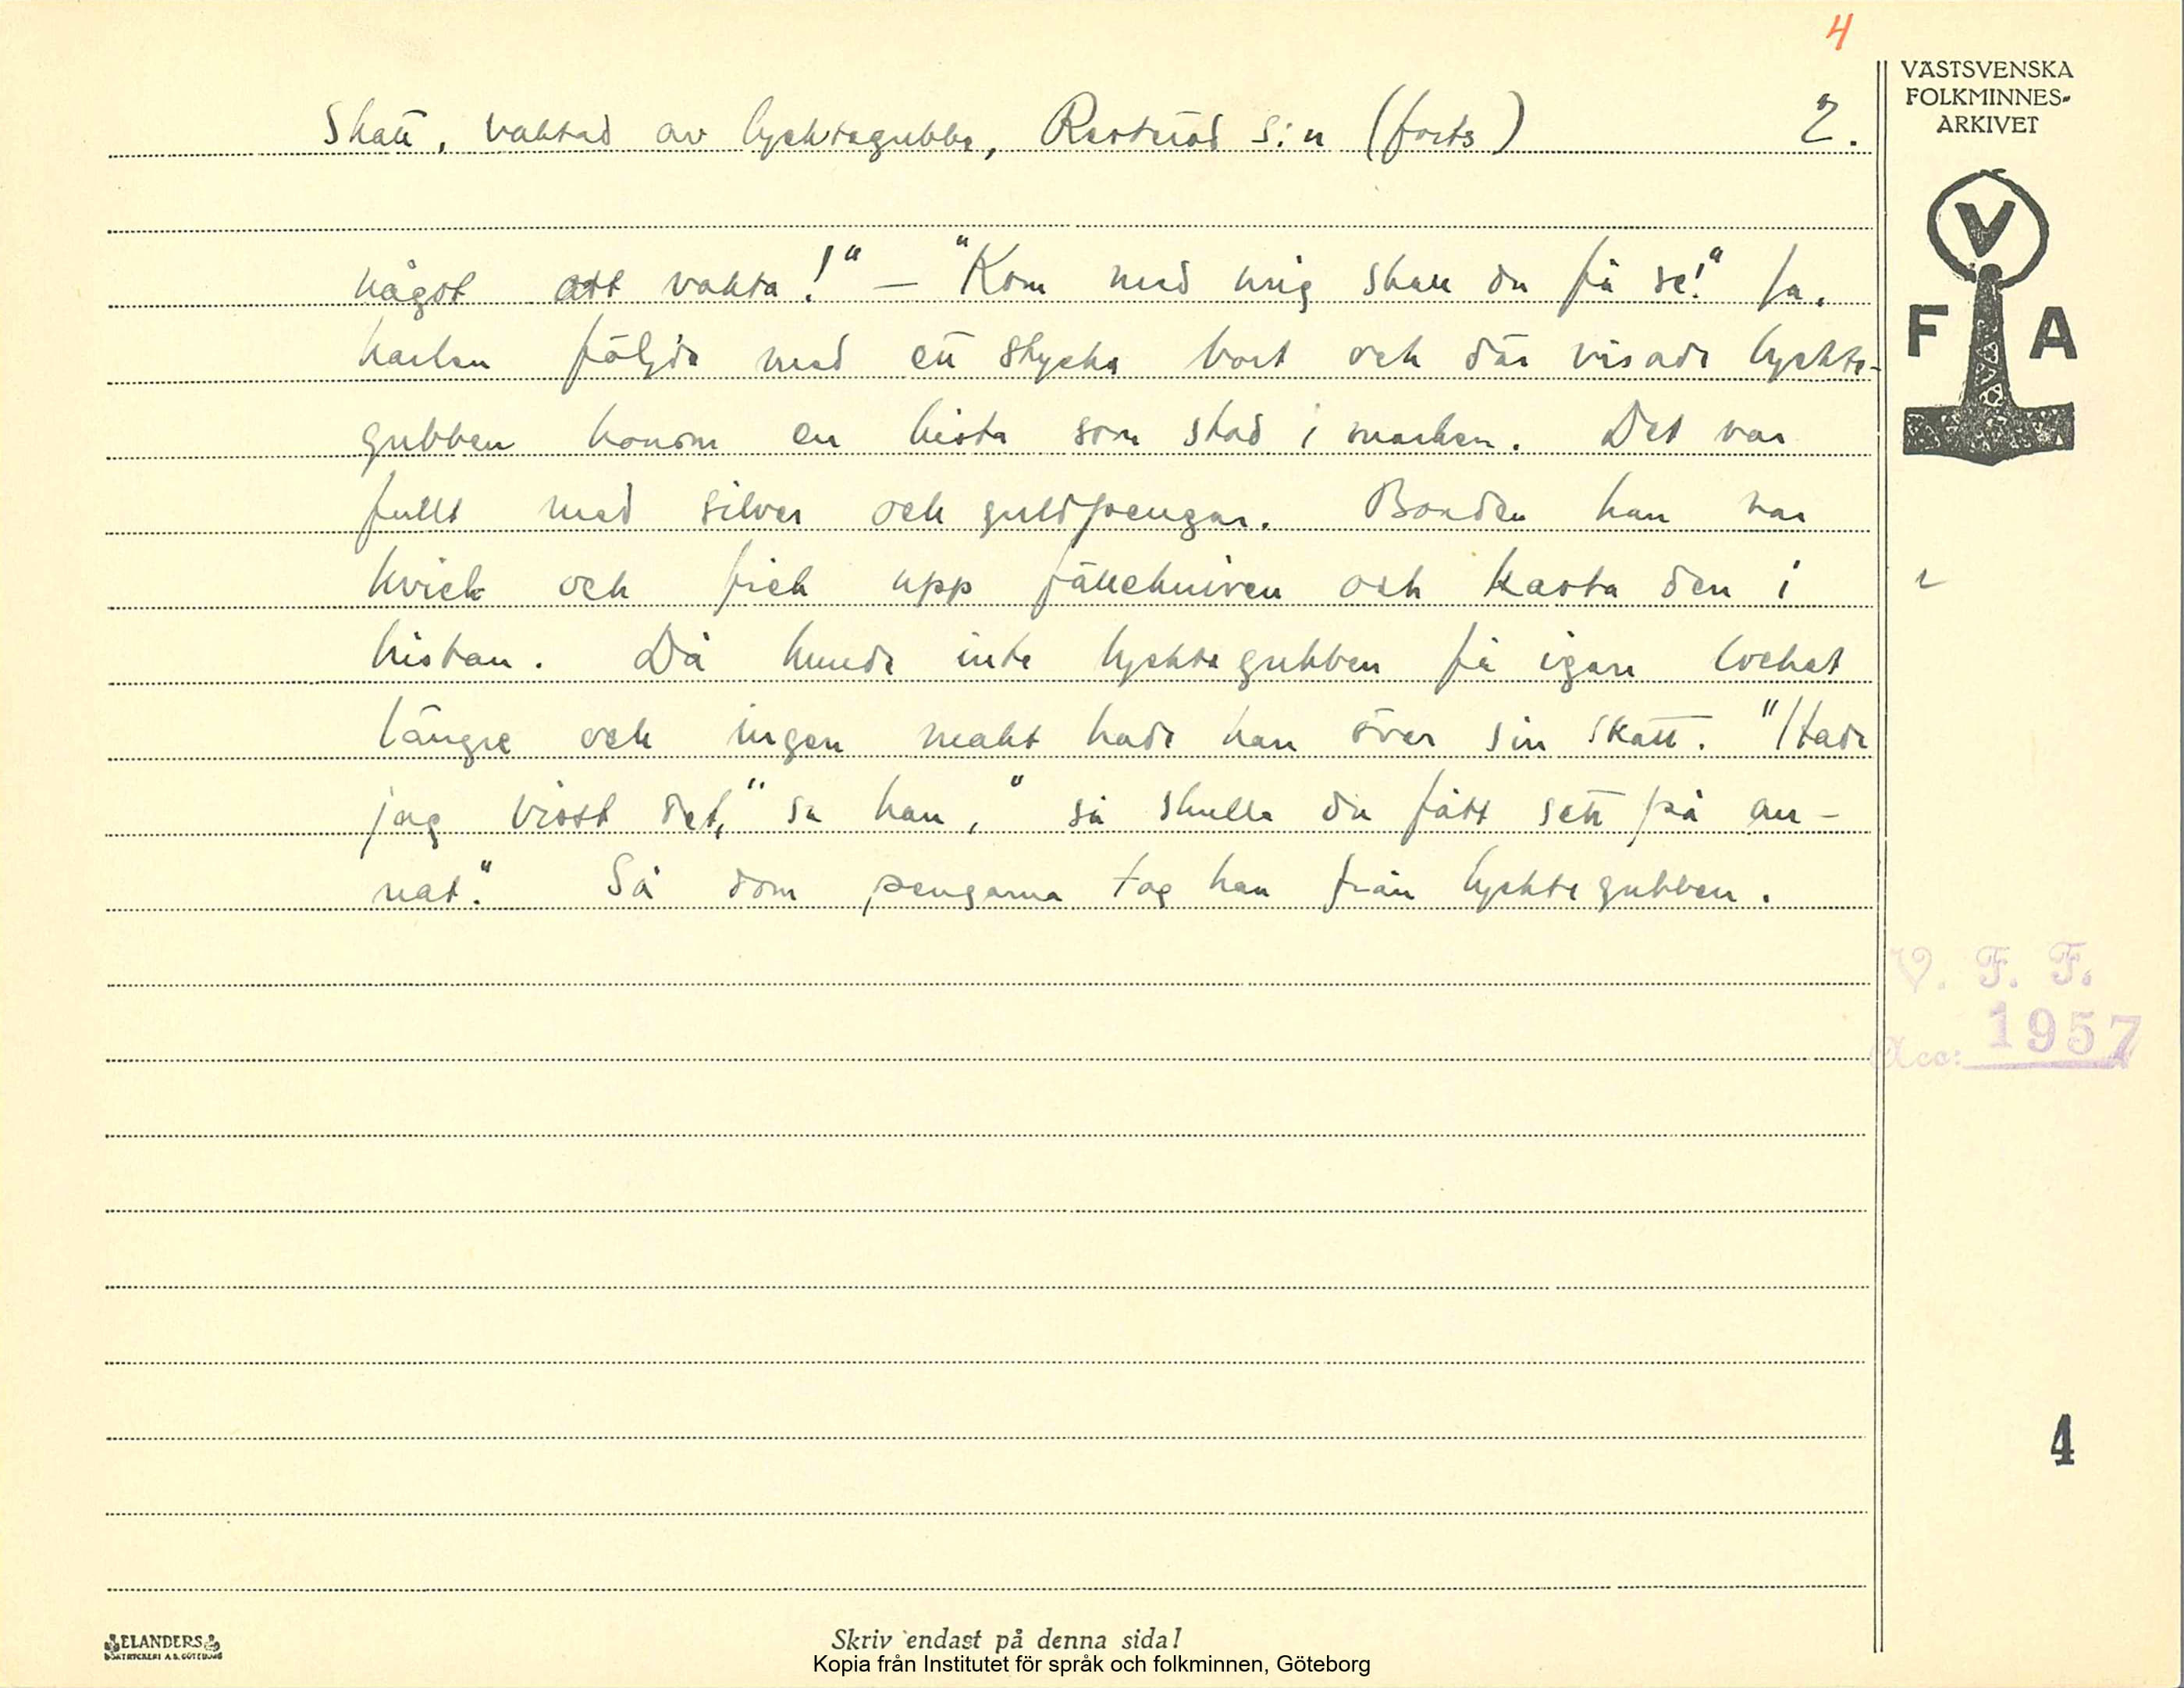 4
VÄSTSVENSKA
FOLKMINNES-
ARKIVET
Skatt, vaktad av lyktegubbe, Resteröd s:n (forts) 2.
V
F A
något att vakta!" – "Kom med mig skall du få se!" Ja,
karlen följde med ett stycke bort och där visade lykte-
gubben honom en kista som stod i marken. Det var
fullt med silver och guldpengar. Bonden han var
kvick och fick upp fällekniven och kasta den i
kistan. Då kunde inte lyktegubben få igen locket
längre och ingen makt hade han över sin skatt. "Hade
jag visst det," sa han, "så skulle du fått sett på an-
nat." Så dom pengarna tog han från lyktegubben.
V. F. F.
Acc: 1957
4
ELANDERS
BOKTRYCKERI A.B. GÖTEBORG
Skriv endast på denna sida!
Kopia från Institutet för språk och folkminnen, Göteborg